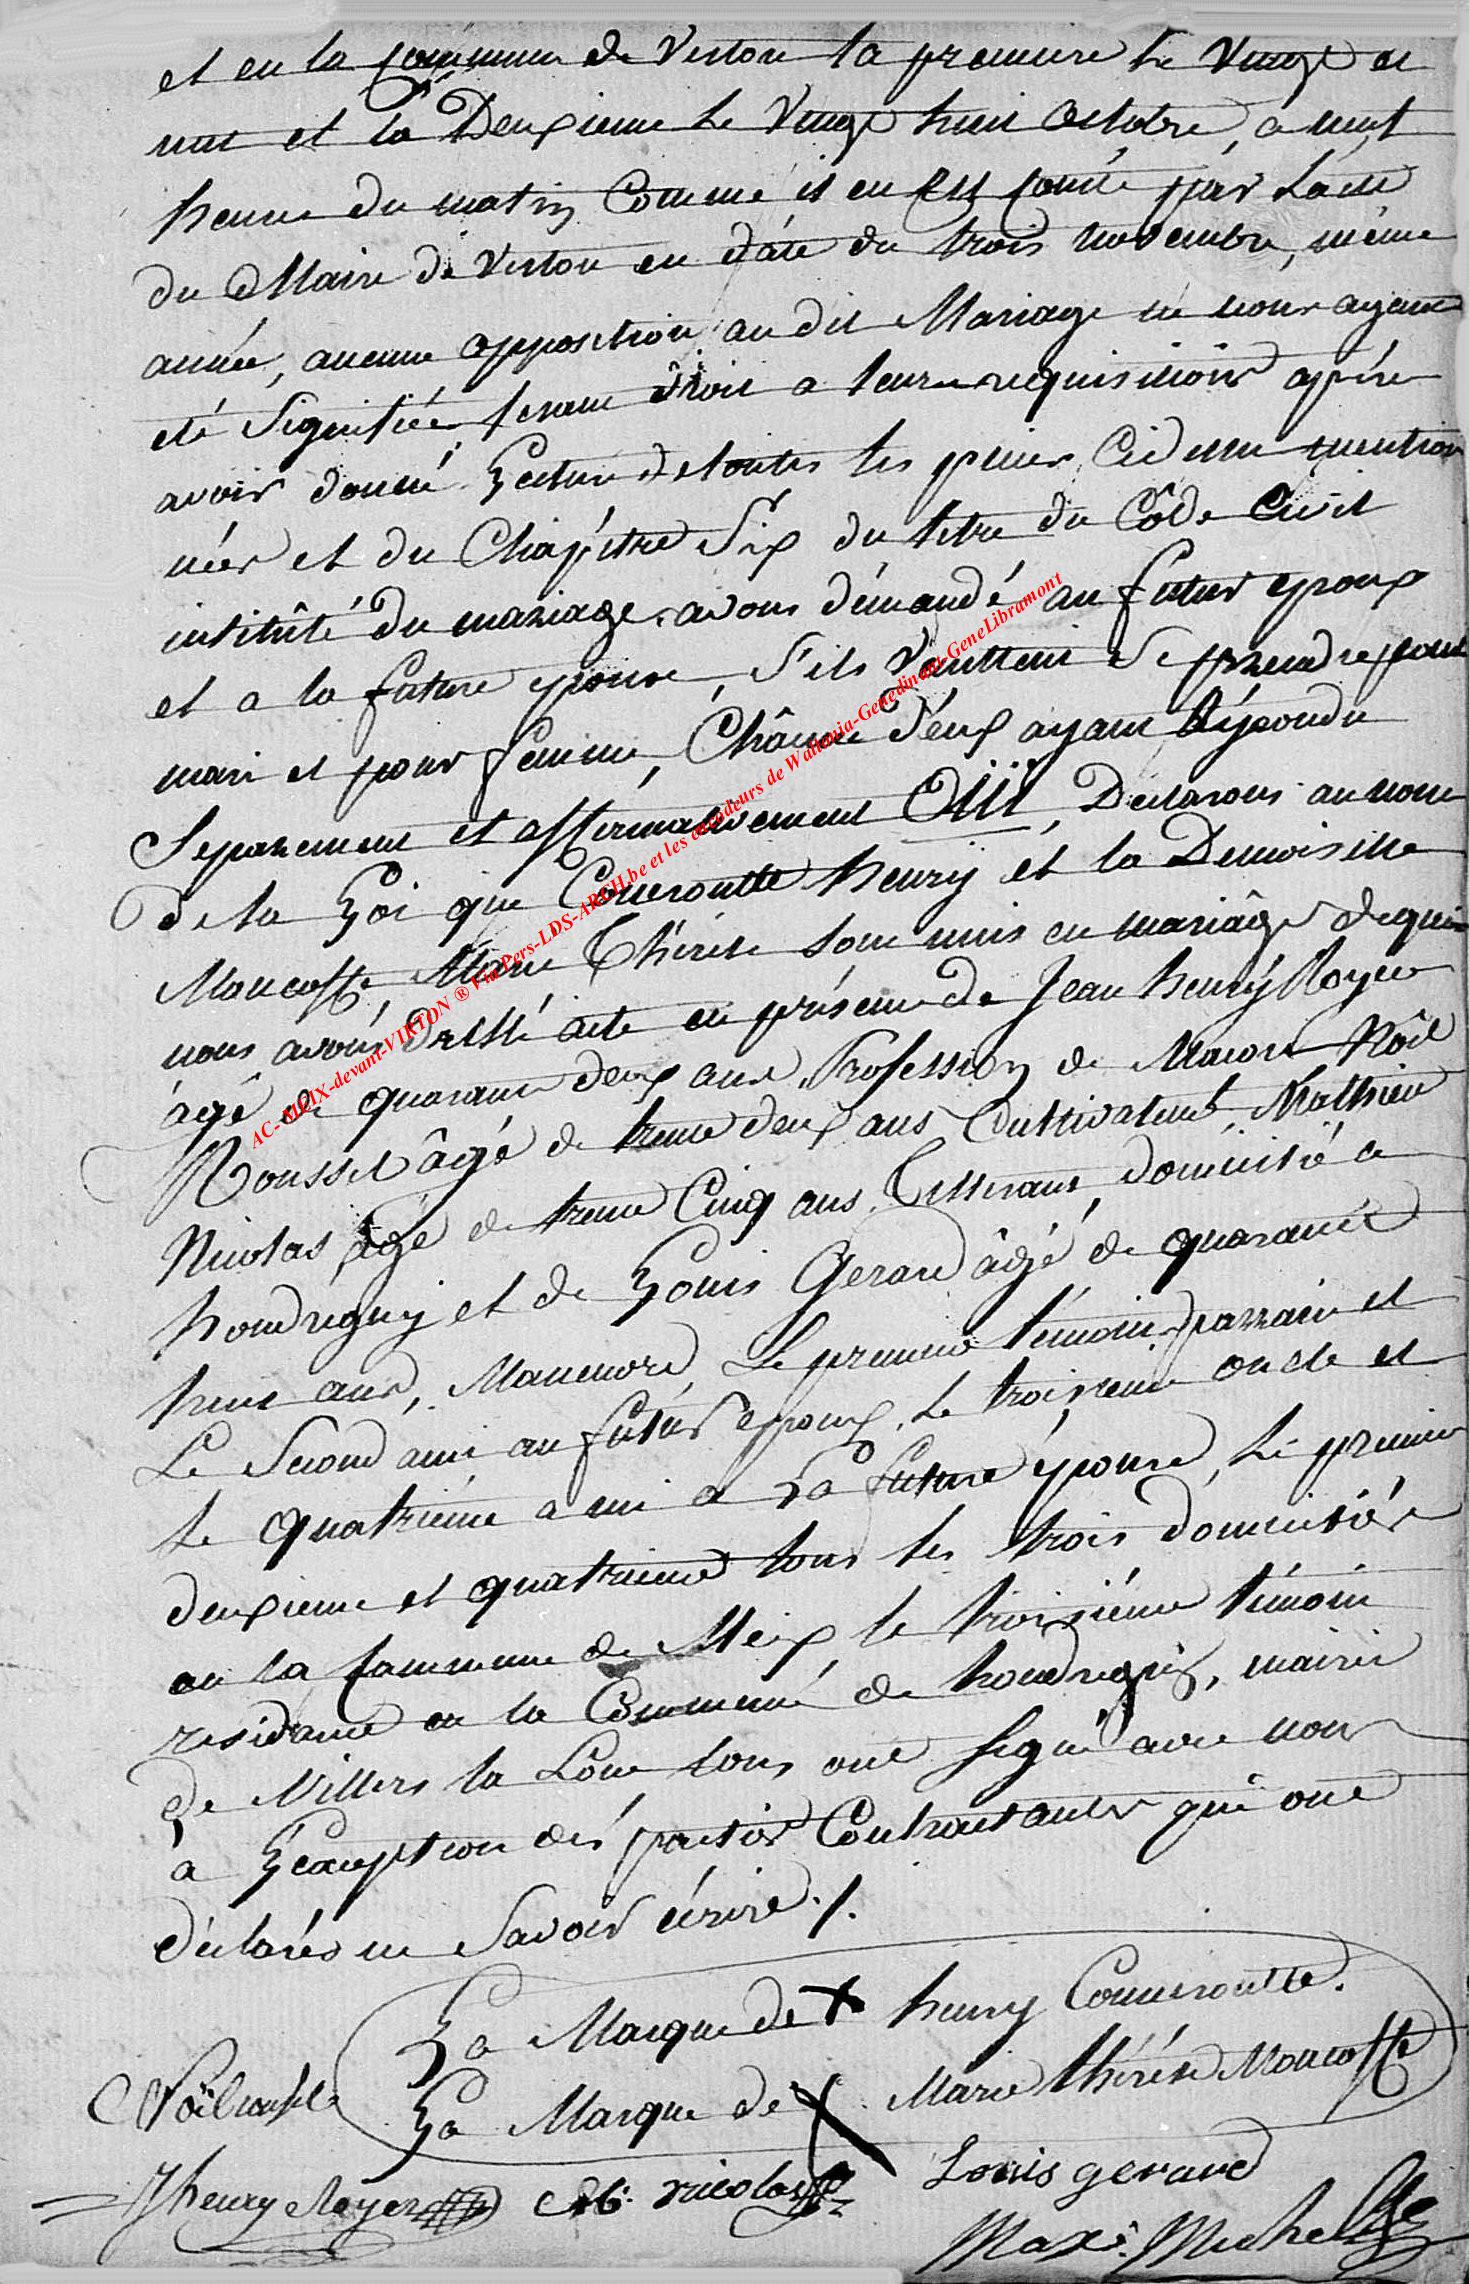 et en la commune de Virton la premiere le vingt et
un et la Deuxieme le vingt huit Octobre, a
heure du matin Comme il en Est par
du Maire de Virton en dâte du trois novembre, même
année, aucune opposition au dit Mariage ne nous ayant
été Signifiée, fesant droit a leur requisition après
avoir donné Lecture de toutes les pieces Ci dessus mention
nées et du Chapitre Six du titre du Côde Civil
intitûlé du mariage, avons démandé au futur epoux
et a la future epouse, S'ils veuillent Se prendre pour
mari et pour femme, Châcun d'eux ayant Répondu
Séparement et affirmativement OUI, Déclarons au nom
de la Loi que Comeroutte henry et la Demoiselle
Moncoffe, Marie Thérése Sont unis en mariâge de quoi
nous avons Dressé acte en présence de Jean henry Royer
âgé de quarante deux ans, Profession de Macon Nôel
Roussel âgé de trente deux ans Cultivateur, Mathieu
Nicolas, âgé de trente Cinq ans, Tisserant, domicilié a
houdrigny et de Louis Gerard âgé de quarante
huit ans, Maneuvre, Le premier témoin parrain et
Le Second ami au futur epoux, Le troisieme oncle et
Le quatriéme ami a La future épouse, Le premier
deuxieme et quatrieme tous les trois domiciliés
en la Commune de Meix, le troisiéme témoin
residant en la Commune de houdrigny, mairie
de Villers la Loue tous ont Signé avec nous
a L'exception des parties Contractantes qui ont
déclarés ne Savoir écrire ./.
La Marque de X henry Comeroutte.
La Marque de X Marie thérése Moncoffe
Nöel roussel
Jhenry Royer M. nicolas Louis gerard
Max. Michel
AC-MEIX-devant-VIRTON ® Via Pers-LDS-ARCH.be et les encodeurs de Wallonia-Genedinant-GeneLibramont